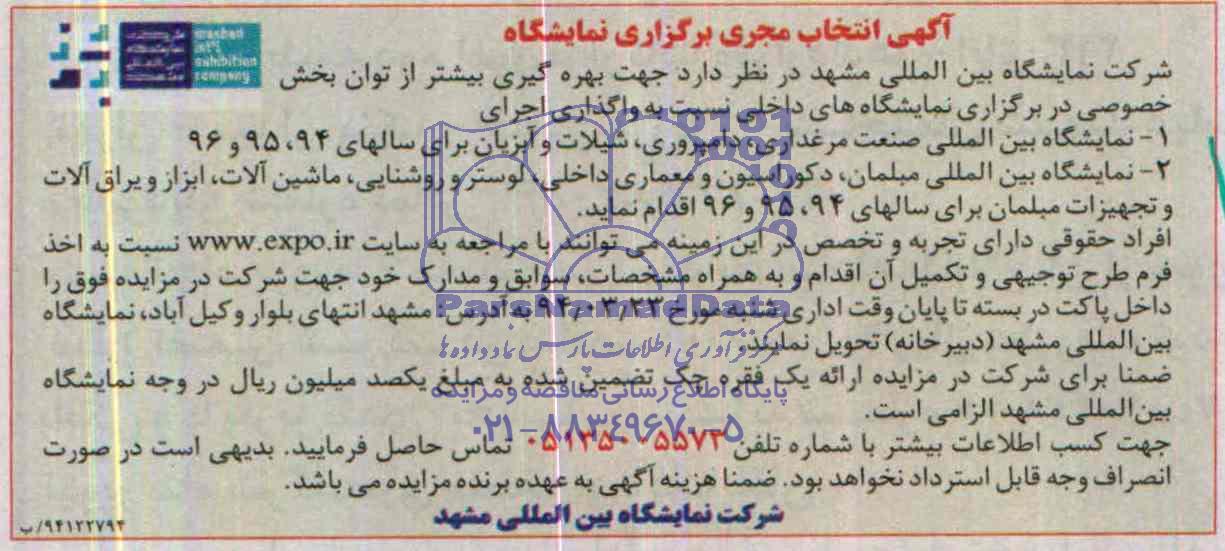 آگهی انتخاب مجری برگزاری نمایشگاه
mashad
int'l
exhibition
company
شرکت نمایشگاه بین المللی مشهد در نظر دارد جهت بهره گیری بیشتر از توان بخش
خصوصی در برگزاری نمایشگاه های داخلی نسبت به واگذاری اجرای
۱- نمایشگاه بین المللی صنعت مرغداری، دامپروری، شیلات و آبزیان برای سالهای ۹۴، ۹۵ و ۹۶
۲- نمایشگاه بین المللی مبلمان، دکوراسیون و معماری داخلی، لوستر و روشنایی، ماشین آلات، ابزار و یراق آلات
و تجهیزات مبلمان برای سالهای ۹۴، ۹۵ و ۹۶ اقدام نماید.
افراد حقوقی دارای تجربه و تخصص در این زمینه می توانند با مراجعه به سایت www.expo.ir نسبت به اخذ
فرم طرح توجیهی و تکمیل آن اقدام و به همراه مشخصات، سوابق و مدارک خود جهت شرکت در مزایده فوق را
داخل پاکت در بسته تا پایان وقت اداری شنبه مورخ ۹۴/۰۳/۲۳ به آدرس: مشهد انتهای بلوار وکیل آباد، نمایشگاه
بین‌المللی مشهد (دبیرخانه) تحویل نمایند.
ضمنا برای شرکت در مزایده ارائه یک فقره چک تضمین شده به مبلغ یکصد میلیون ریال در وجه نمایشگاه
بین‌المللی مشهد الزامی است.
جهت کسب اطلاعات بیشتر با شماره تلفن ۰۵۱۳۵۰۰۵۵۷۳ تماس حاصل فرمایید. بدیهی است در صورت
انصراف وجه قابل استرداد نخواهد بود. ضمنا هزینه آگهی به عهده برنده مزایده می باشد.
شرکت نمایشگاه بین المللی مشهد
۹۴۱۲۲۷۹۴/ب
ParsNamadData
مرکز فرآوری اطلاعات پارس نماد داده ها
پایگاه اطلاع رسانی مناقصه و مزایده
۰۲۱-۸۸۳۴۹۶۷۰-۵